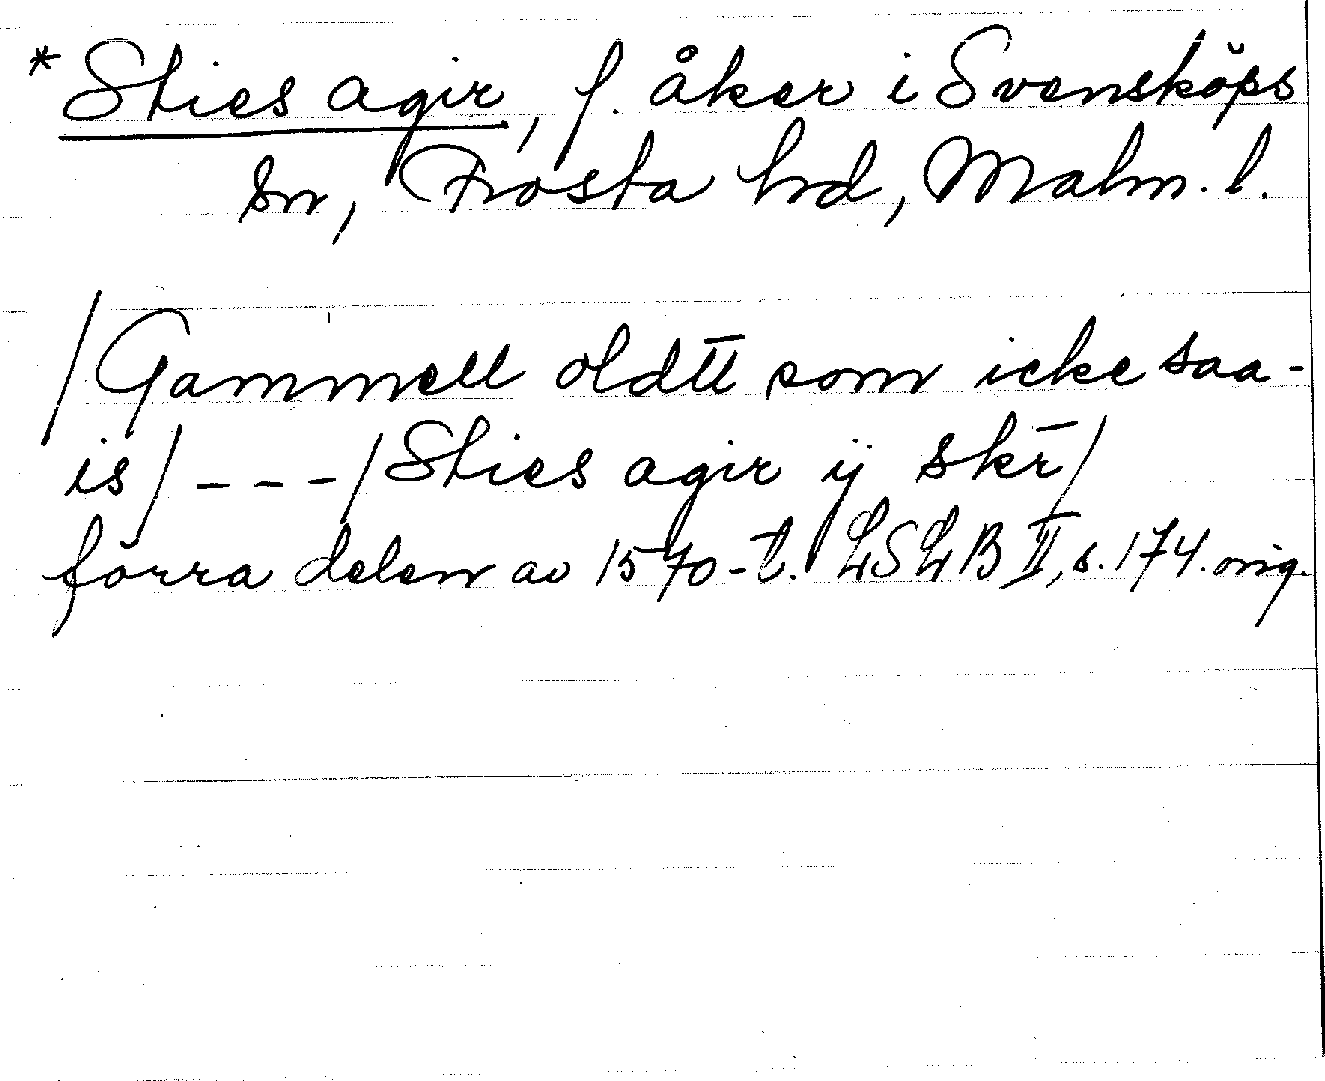 *Sties agir, f. åker i Svensköps
sn, Frosta hd, Malm. l.
/Gammell oldtt som icke saa-
is/---/Sties agir ij skr̄/
förra delen av 1570-t. LSLB II, s. 174. orig.